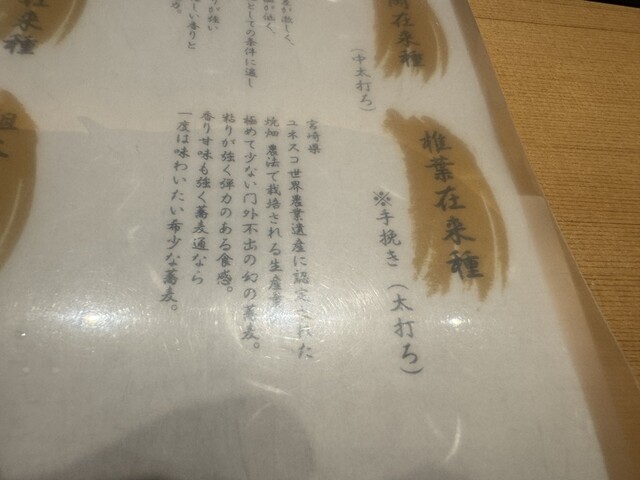 在来種
（中太打ち）
椎葉在来種
※手挽き（太打ち）
宮崎県
ユネスコ世界農業遺産に認定された
焼畑農法で栽培される生産
極めて少ない門外不出の幻の蕎麦。
粘りが強く弾力のある食感。
香り甘味も強く蕎麦通なら
一度は味わいたい希少な蕎麦。
在来種